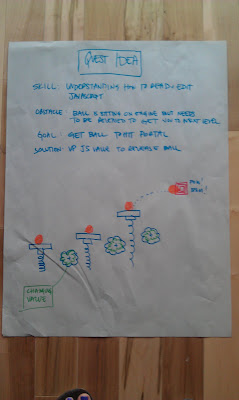 QUEST IDEA
SKILL: UNDERSTANDING HOW TO READ + EDIT
JAVASCRIPT
OBSTACLE: BALL IS SITTING ON SPRING BUT NEEDS
TO BE RELEASED TO GET YOU TO NEXT LEVEL
GOAL: GET BALL TO HIT PORTAL
SOLUTION: UP JS VALUE TO RELEASE BALL
CHANGING
VALUE